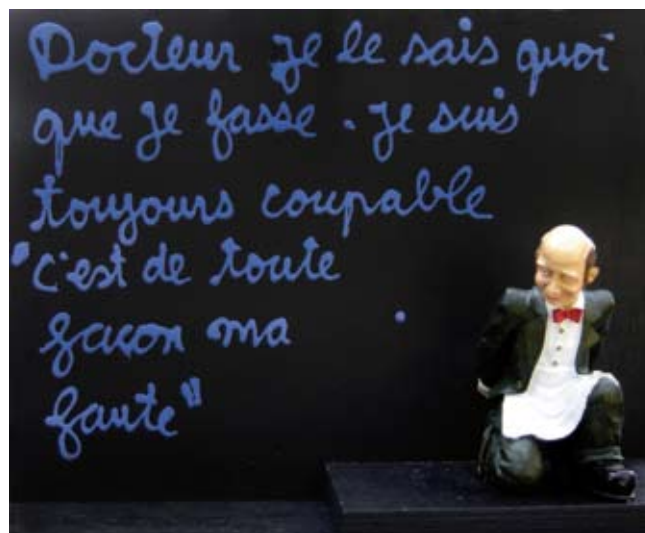 Docteur je le sais quoi
que je fasse. je suis
toujours coupable
"c'est de toute
façon ma
faute"